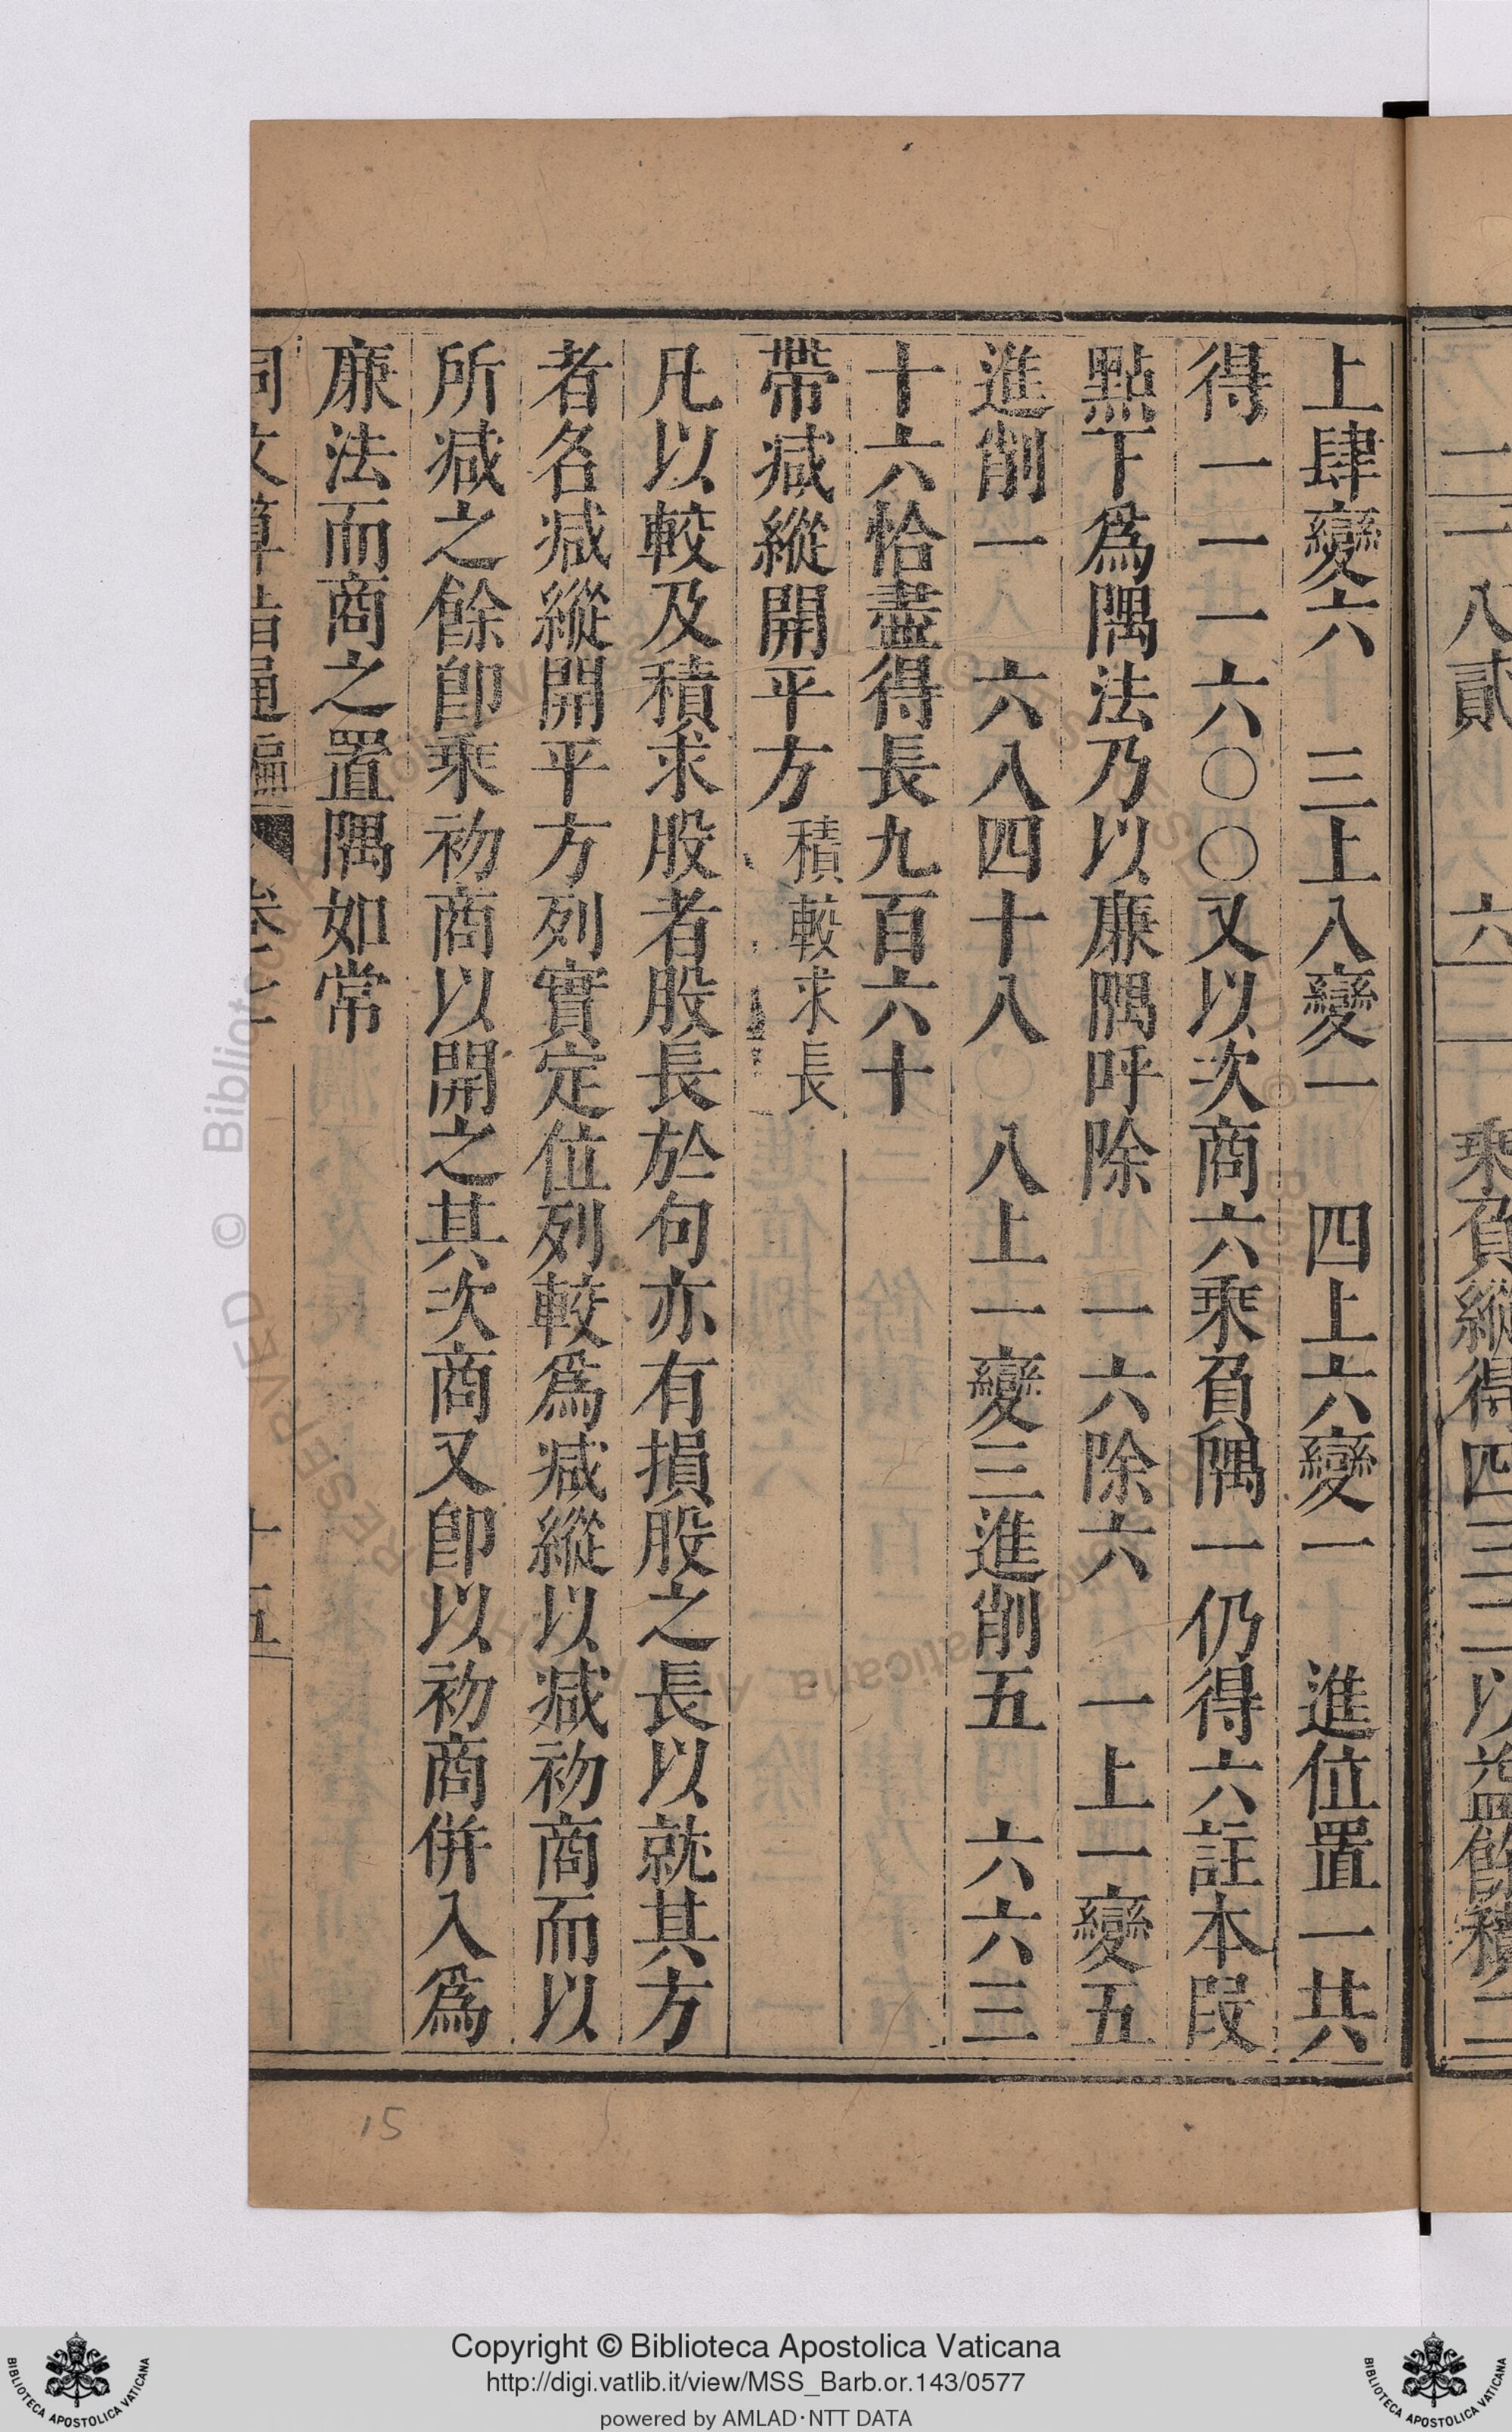 上肆變六　三上八變一　四上六變一　進位置一共
得一一一六〇〇又以次商六乘負隅一仍得六註本叚
點下爲隅法乃以廉隅呼除　一六除六　一上一變五
進削一　六八四十八　八上一變三進削五　六六三
十六恰盡得長九百六十
帶減縱開平方積較求長
凡以較及積求股者股長於句亦有損股之長以就其方
者名減縱開平方列實定位列較爲減縱以減初商而以
所減之餘卽乘初商以開之其次商又卽以初商併入爲
廉法而商之置隅如常
同文算指通編　卷七　十五
15
Copyright © Biblioteca Apostolica Vaticana
http://digi.vatlib.it/view/MSS_Barb.or.143/0577
powered by AMLAD·NTT DATA
BIBLIOTECA APOSTOLICA VATICANA
BIBLIOTECA APOSTOLICA VATICANA